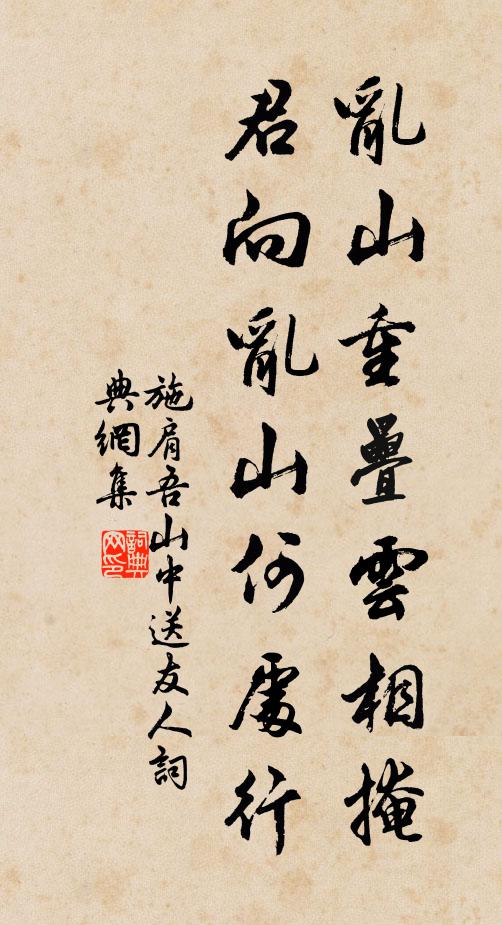 亂山重疊雲相掩
君向亂山何處行
施肩吾山中送友人詞
典網集
詞典網印